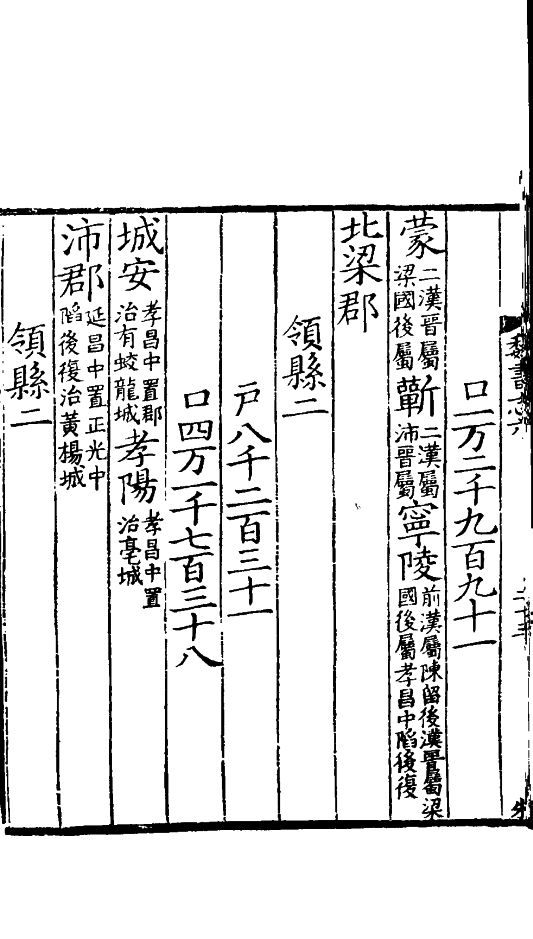 口一万二千九百九十一
蒙二漢晉屬梁國後屬蘄二漢屬沛晉屬寧陵前漢屬陳留後漢晉屬梁國後屬孝昌中陷後復
北梁郡
領縣二
戶八千二百三十一
口四万一千七百三十八
城安孝昌中置郡治有蛟龍城孝陽孝昌中置治亳城
沛郡延昌中置正光中陷後復治黃楊城
領縣二